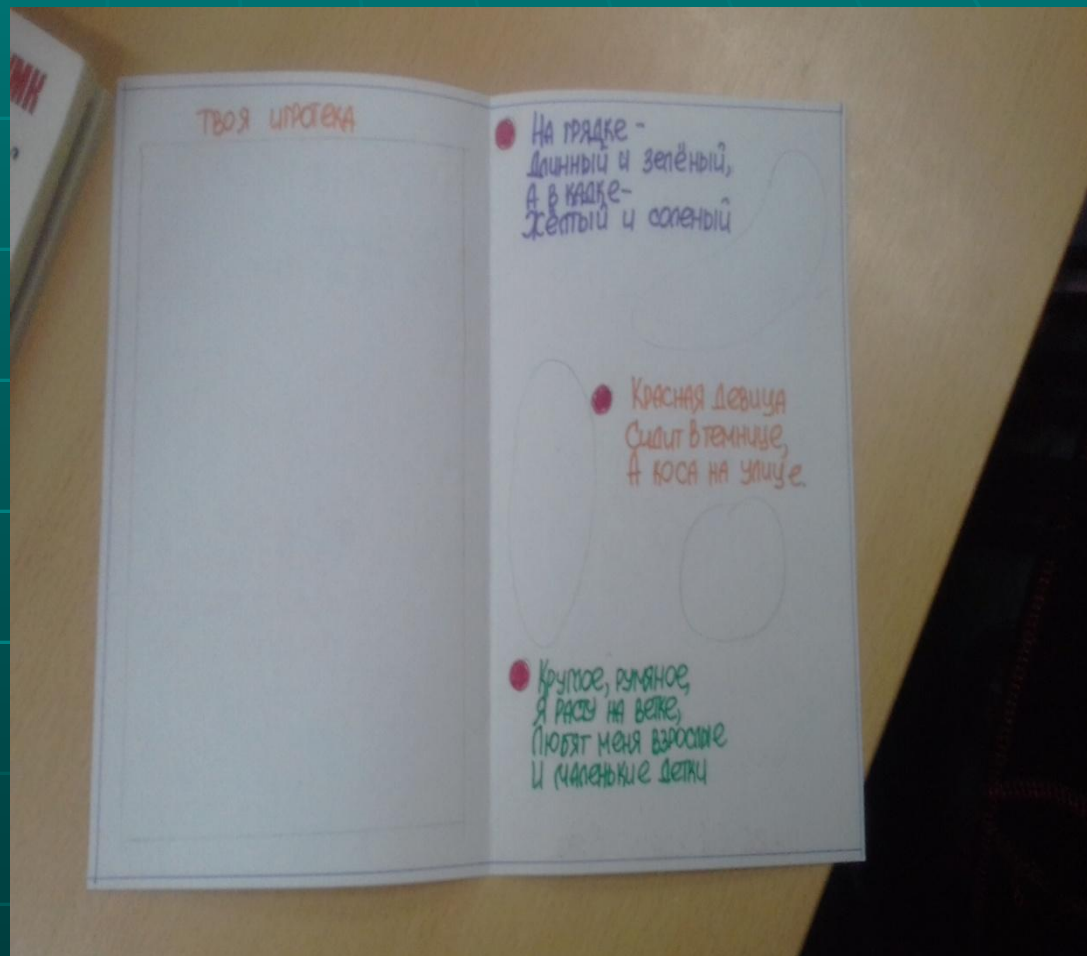 МК
?
ТВОЯ ИГРОТЕКА
НА ГРЯДКЕ -
ДЛИННЫЙ И ЗЕЛЁНЫЙ,
А В КАДКЕ-
ЖЁЛТЫЙ И СОЛЕНЫЙ
КРАСНАЯ ДЕВИЦА
СИДИТ В ТЕМНИЦЕ,
А КОСА НА УЛИЦЕ
КРУГЛОЕ, РУМЯНОЕ,
Я РАСТУ НА ВЕТКЕ,
ЛЮБЯТ МЕНЯ ВЗРОСЛЫЕ
И МАЛЕНЬКИЕ ДЕТКИ